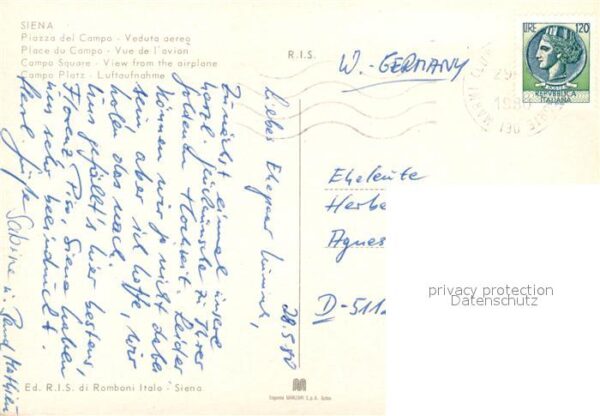 SIENA
Piazza del Campo - Veduta aerea
Place du Campo - Vue de l'avion
Campo Square - View from the airplane
Campo Platz - Luftaufnahme
R.I.S.
W.-GERMANY
LIRE 120
REPVBBLICA
ITALIANA
28.5.80
Liebes Ehepaar
Zunächst einmal unsere
herzl. Glückwünsche zu Ihrer
goldenen Hochzeit. Leider
können wir ja nicht dabei
sein, aber ich hoffe, wir
holen das nach.
Uns gefällt's hier bestens,
Florenz, Pisa, Siena haben
uns sehr beeindruckt.
Herzl. Grüße Sabine u.
Eheleute
Herbe
Agnes
D-511
privacy protection
Datenschutz
Ed. R.I.S. di Romboni Italo - Siena